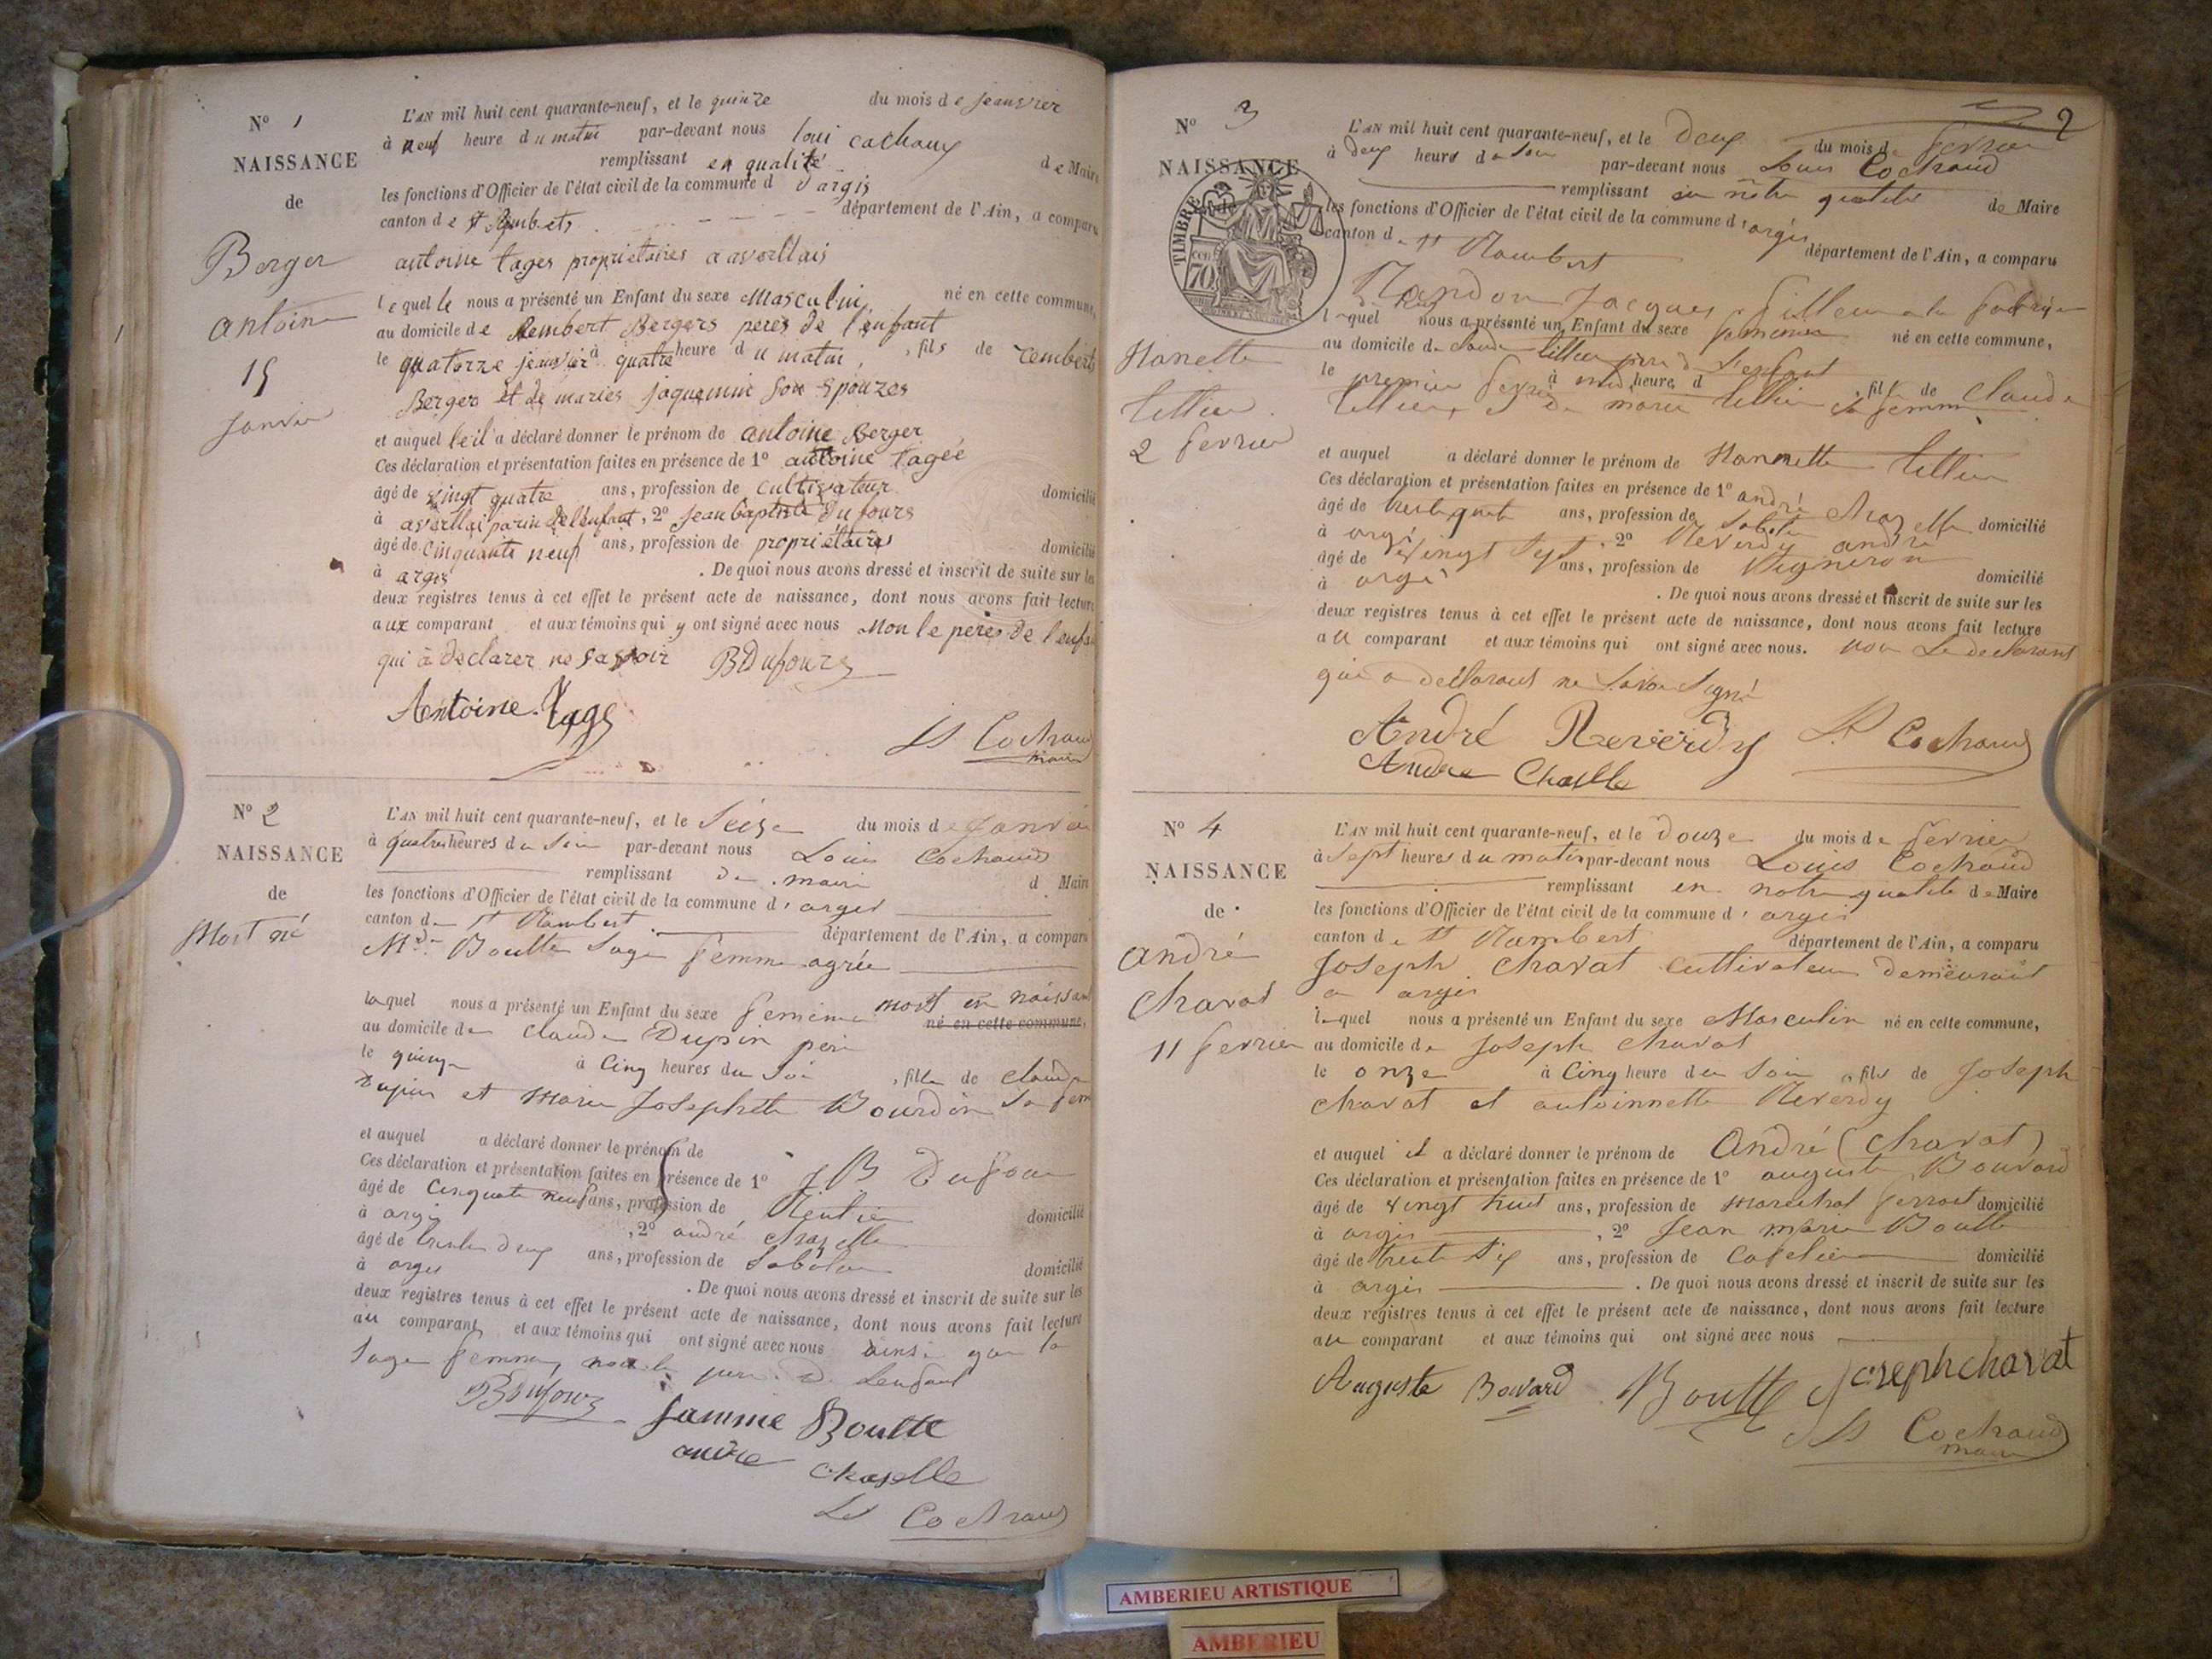 N° 1
NAISSANCE
de
Berger
antoine
15
Janvier
L'AN mil huit cent quarante-neuf, et le quinze du mois de jeanvier
à neuf heure du matin par-devant nous loui cochaux
remplissant en qualité de Maire
les fonctions d'Officier de l'état civil de la commune d'argis
canton de st Rambets département de l'Ain, a comparu
antoine tages propriétaires a averllais
lequel le nous a présenté un Enfant du sexe Masculin né en cette commune,
au domicile de Rembert Bergers peres de l'enfant
le quatorze jeanvier à quatre heure du matin, fils de rembert
Bergers et de maries jaquemin son Epouzes
et auquel leil a déclaré donner le prénom de antoine Berger
Ces déclaration et présentation faites en présence de 1° antoine tagée
âgé de vingt quatre ans, profession de cultivateur domicilié
à averllai parin de l'enfant, 2° jean baptiste Dufours
âgé de cinquante neuf ans, profession de propriétaires domicilié
à argis . De quoi nous avons dressé et inscrit de suite sur les
deux registres tenus à cet effet le présent acte de naissance, dont nous avons fait lecture
aux comparant et aux témoins qui y ont signé avec nous Non le peres de l'enfant
qui à declarer ne sasvoir BDufours
Antoine Tage
Ls Cochaud
maire
N° 2
NAISSANCE
de
Mort né
L'AN mil huit cent quarante-neuf, et le Seize du mois de Janvier
à quatres heures du Soir par-devant nous Louis Cochaud
remplissant de maire d Maire
les fonctions d'Officier de l'état civil de la commune d'arges
canton de st Rambert département de l'Ain, a comparu
Mde Boutte Sage femme agrée
laquel nous a présenté un Enfant du sexe feminin mort en naissant
né en cette commune,
au domicile de claude Dupin père
le quinze à Cinq heures du Soir, fille de claude
Dupin et Marie Josephete Bourdin Sa fem
et auquel a déclaré donner le prénom de
Ces déclaration et présentation faites en présence de 1° J B Dufour
âgé de cinquante neuf ans, profession de Rentier domicilié
à argis, 2° andré chazelle
âgé de trente deux ans, profession de Sabotier domicilié
à argis . De quoi nous avons dressé et inscrit de suite sur les
deux registres tenus à cet effet le présent acte de naissance, dont nous avons fait lecture
au comparant et aux témoins qui ont signé avec nous ainsi que la
Sage femme, non le père de l'enfant
BDufours
famme Boutte
andre chaselle
Ls Cochaud
2
N° 3
NAISSANCE
TIMBRE
70
Nanette
tillier
2 fevrier
L'AN mil huit cent quarante-neuf, et le Deux du mois de fevrier
à deux heures du Soir par-devant nous Louis Cochaud
remplissant en nôtre qualité de Maire
les fonctions d'Officier de l'état civil de la commune d'argis
canton de st Rambert département de l'Ain, a comparu
Jacques
lequel nous a présenté un Enfant du sexe feminin né en cette commune,
au domicile de claude tillier père de l'enfant
le premier fevrier à heure d, fille de Claude
tillier, de marie tillier Sa femme
et auquel a déclaré donner le prénom de Nannette tillier
Ces déclaration et présentation faites en présence de 1° andré chazelle
âgé de trente quatre ans, profession de Sabotier domicilié
à argis, 2° Reverdy andré
âgé de vingt Sept ans, profession de Vigneron domicilié
à argis . De quoi nous avons dressé et inscrit de suite sur les
deux registres tenus à cet effet le présent acte de naissance, dont nous avons fait lecture
au comparant et aux témoins qui ont signé avec nous. non Le declarant
qui a déclarant ne Savoir Signé
André Reverdy Ls Cochaud
Andre Chaselle
N° 4
NAISSANCE
de
andré
Chavat
11 fevrier
L'AN mil huit cent quarante-neuf, et le Douze du mois de fevrier
à Sept heures du matin par-devant nous Louis Cochaud
remplissant en notre qualité de Maire
les fonctions d'Officier de l'état civil de la commune d'argis
canton de st Rambert département de l'Ain, a comparu
Joseph Chavat cultivateur demeurant
a argis
lequel nous a présenté un Enfant du sexe Masculin né en cette commune,
au domicile de Joseph Chavat
le onze à Cinq heure du Soir, fils de Joseph
Chavat et antoinnette Reverdy
et auquel il a déclaré donner le prénom de André (Chavat)
Ces déclaration et présentation faites en présence de 1° auguste Bouvard
âgé de vingt huit ans, profession de Maréchal ferrant domicilié
à argis, 2° Jean Marie Boutte
âgé de trente Six ans, profession de Cafetier domicilié
à argis . De quoi nous avons dressé et inscrit de suite sur les
deux registres tenus à cet effet le présent acte de naissance, dont nous avons fait lecture
au comparant et aux témoins qui ont signé avec nous
Auguste Bouvard Boutte Joseph chavat
Ls Cochaud
maire
AMBERIEU ARTISTIQUE
AMBERIEU